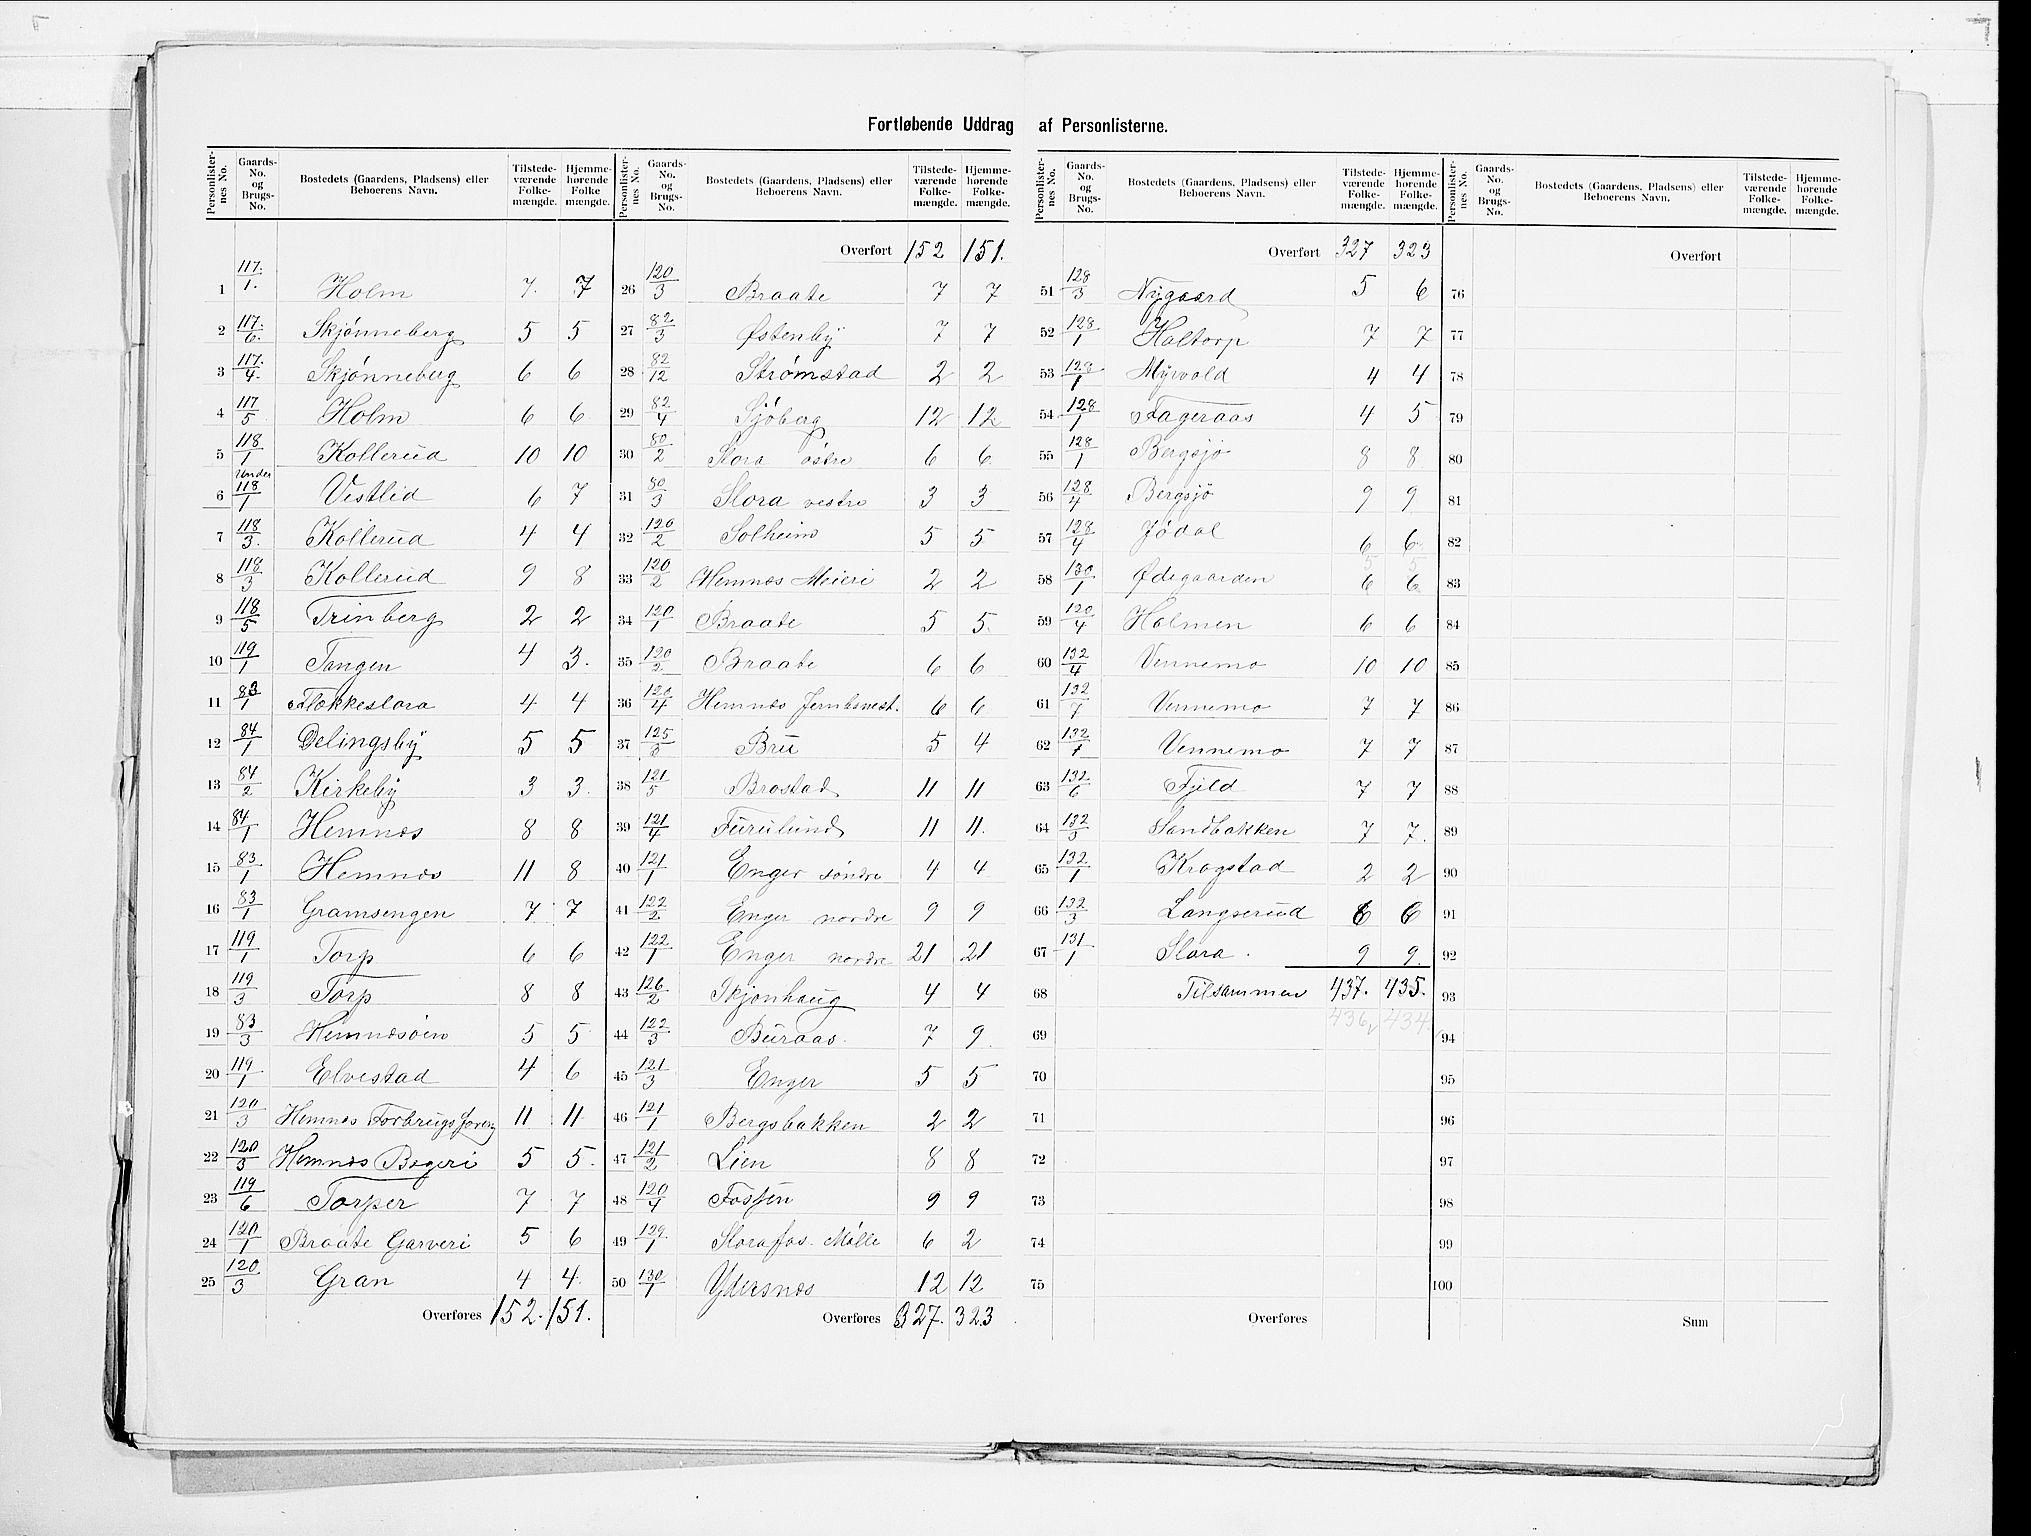 Fortløbende Uddrag af Personlisterne.
Personlister-nes No. | Gaards-No. og Brugs-No. | Bostedets (Gaardens, Pladsens) eller Beboerens Navn. | Tilstede-værende Folke-mængde. | Hjemme-hørende Folke mængde.
1 117/1. Holm 7. 7
2 117/6. Skjönneberg 5 5
3 117/4. Skjönneberg 6 6
4 117/5 Holm 6 6
5 118/1 Kollerud 10 10
6 Under 118/1 Vestlid 6 7
7 118/3. Kollerud 4 4
8 118/3 Kollerud 9 8
9 118/5 Trinberg 2 2
10 119/1 Tangen 4 3.
11 83/1 Flokkeslora 4 4
12 84/1 Delingsby 5 5
13 84/2 Kirkeby 3 3.
14 84/1 Hemnæs 8 8
15 83/1 Hemnæs 11 8
16 83/1 Gramsengen 7. 7
17 119/1 Torp 6 6
18 119/3 Torp 8 8
19 83/3 Hemnæsöen 5 5
20 119/1 Elvestad 4 6
21 120/3 Hemnæs Forbrugsforeng 11 11
22 120/3 Hemnæs Bageri 5 5.
23 119/6 Torper 7 7
24 120/1 Braate Garveri 5 6
25 120/3 Gran 4 4.
Overføres 152. 151.
Personlister-nes No. | Gaards-No. og Brugs-No. | Bostedets (Gaardens, Pladsens) eller Beboerens Navn. | Tilstede-værende Folke-mængde. | Hjemme-hørende Folke-mængde.
Overført 152 151.
26 120/3 Braate 7 7
27 82/3 Østenby 7 7
28 82/12 Strömstad 2 2
29 82/4 Sjöberg 12 12
30 80/2 Slora östre 6 6
31 80/3 Slora vestre 3 3
32 120/2 Solheim 5 5
33 120/2 Hemnæs Meieri 2 2
34 120/1 Braate 5 5.
35 120/2 Braate 6 6
36 120/4 Hemnæs Jernbanest. 6 6
37 125/3 Bru 5 4
38 121/5 Brostad 11 11
39 121/4 Furulund 11 11.
40 121/1 Enger söndre 4 4
41 122/2 Enger nordre 9 9
42 122/1 Enger nordre 21 21
43 126/2 Skjönhaug 4 4
44 122/3 Buraas. 7 9.
45 121/3 Enger 5 5
46 121/1 Bergsbakken 2 2
47 121/2 Lien 8 8
48 120/4 Fossen 9 9
49 129/1 Slorafos Mölle 6 2
50 130/1 Ydersnæs 12 12
Overføres 327. 323
Personlister-nes No. | Gaards-No. og Brugs-No. | Bostedets (Gaardens, Pladsens) eller Beboerens Navn. | Tilstede-værende Folke-mængde. | Hjemme-hørende Folke-mængde.
Overført 327 323
51 128/3 Nygaard 5 6
52 128/1 Haltorp 7 7
53 128/1 Myrvold 4 4
54 128/1 Fageraas 4 5
55 128/1 Bergsjö 8 8
56 128/4 Bergsjö 9 9
57 128/4 Jödal 6 6
5 5
58 130/1 Ødegaarden 6 6
59 120/4 Holmen 6 6
60 132/4 Vennemo 10 10
61 132/7 Vennemo 7 7
62 132/1 Vennemo 7 7
63 132/6 Fjeld 7 7
64 132/5 Sandbakken 7 7.
65 132/1 Krogstad 2 2
66 132/3 Langserud 6 6
67 131/1 Slora. 9 9.
68 Tilsammen 437. 435.
69 436 434
70
71
72
73
74
75
Overføres
Personlister-nes No. | Gaards-No. og Brugs-No. | Bostedets (Gaardens, Pladsens) eller Beboerens Navn. | Tilstede-værende Folke-mængde. | Hjemme-hørende Folke-mængde.
Overført
76
77
78
79
80
81
82
83
84
85
86
87
88
89
90
91
92
93
94
95
96
97
98
99
100
Sum